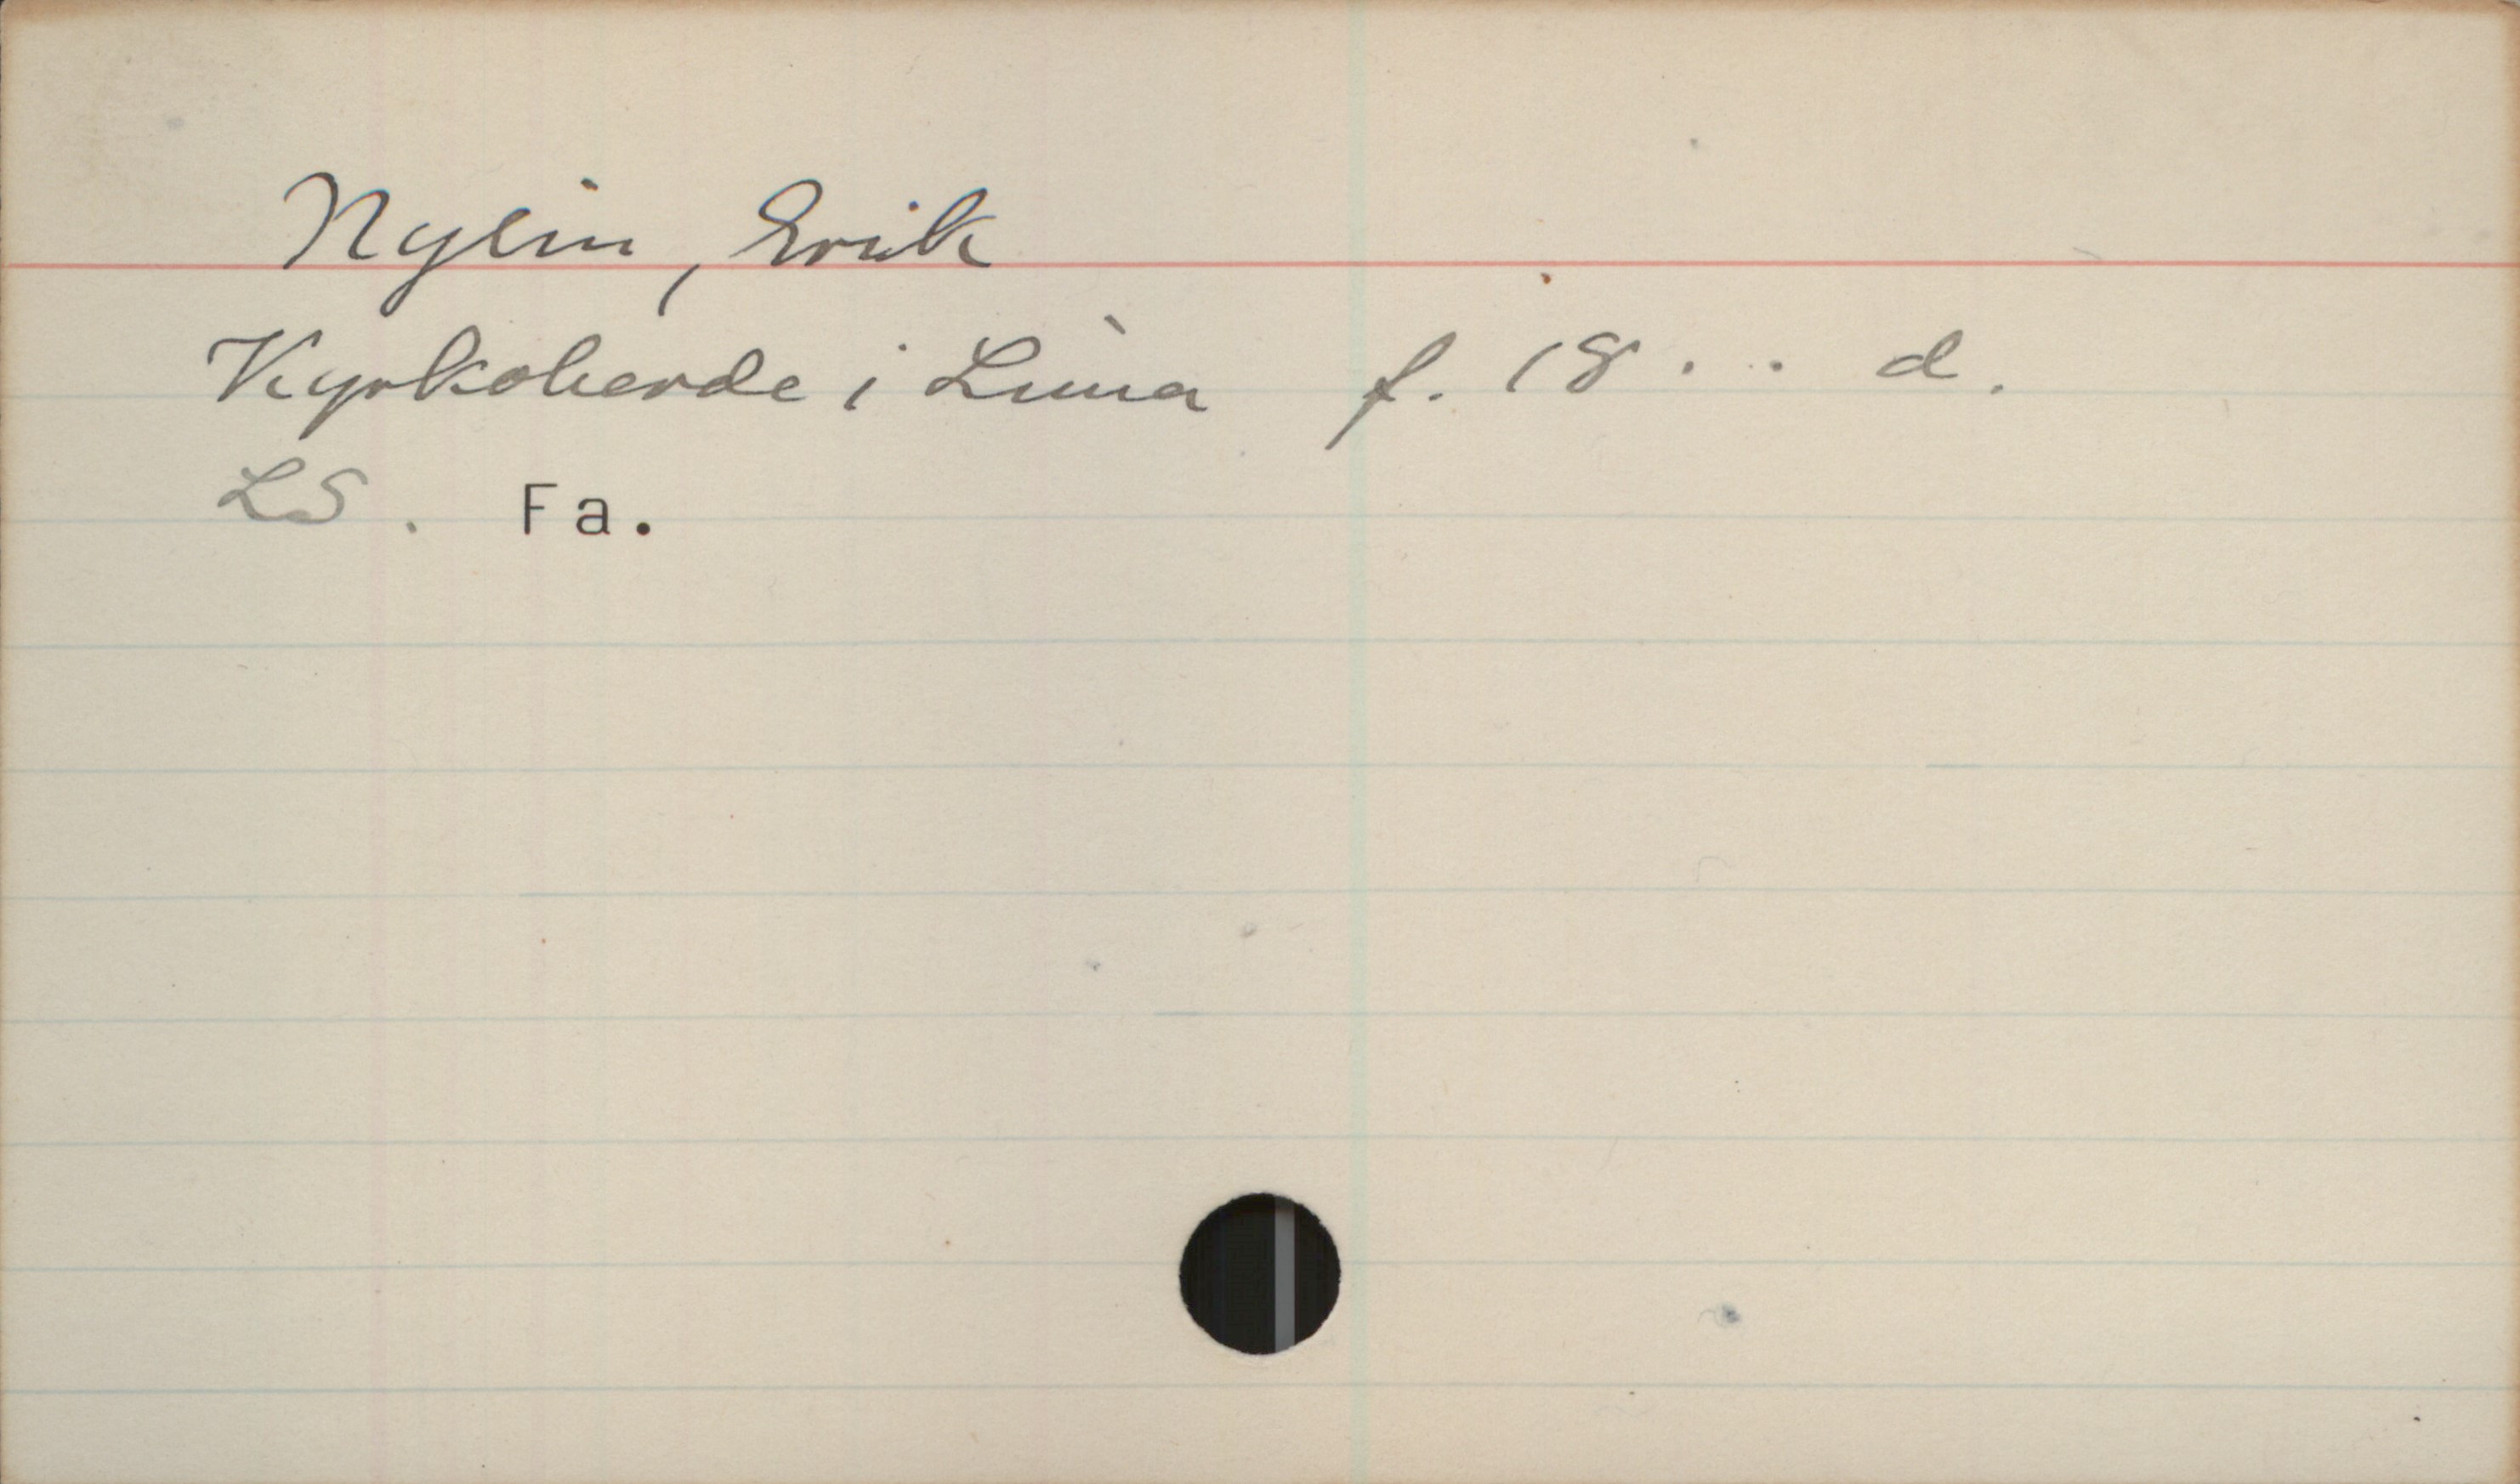 Nylin, Erik
Kyrkoherde i Luna f. 18 . . d.
LS. Fa.